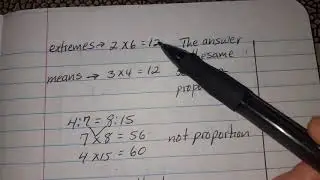 extremes → 2 x 6 = 12 The answer
the same
means → 3 x 4 = 12
propor
4:7 = 8:15
7 x 8 = 56 not proportion
4 x 15 = 60